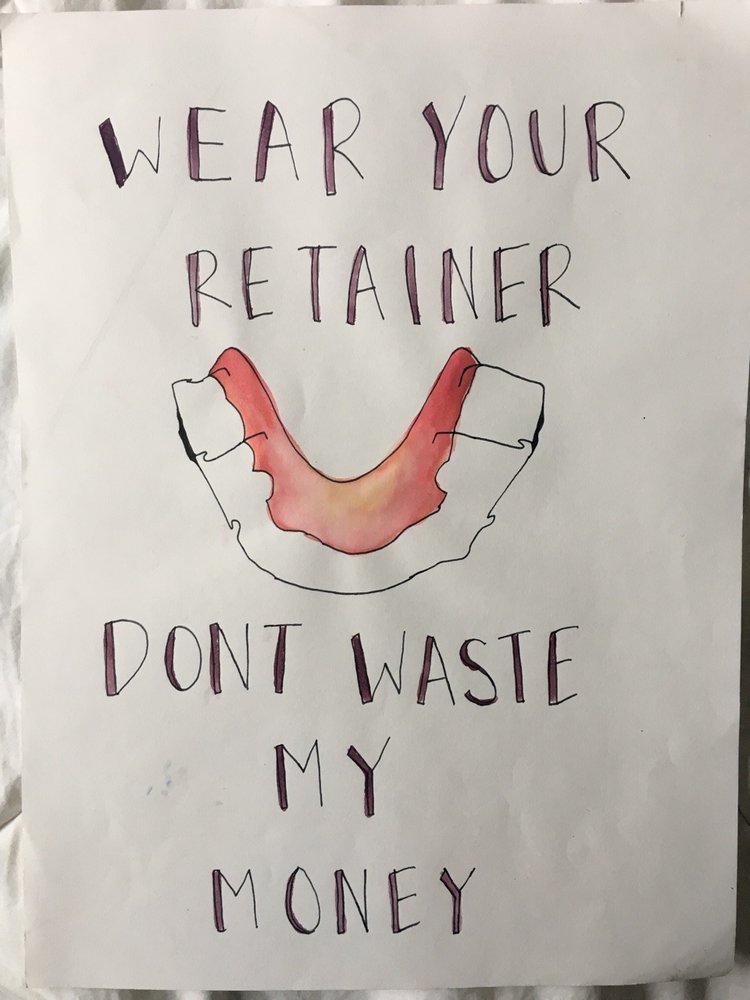 WEAR YOUR
RETAINER
DONT WASTE
MY
MONEY